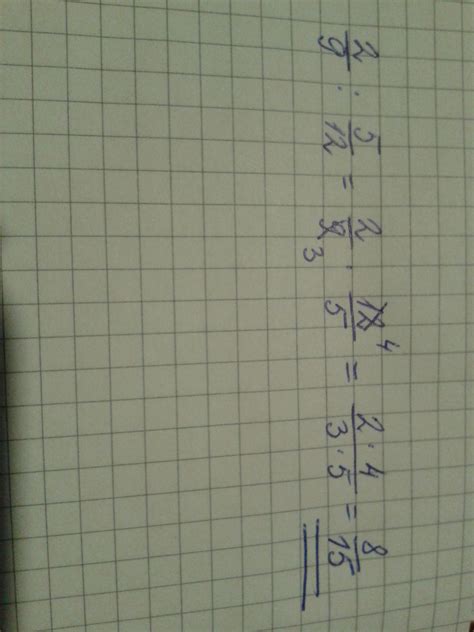 2/9 : 5/12 = 2/9 3 · 12/5 4 = 2·4/3·5 = 8/15